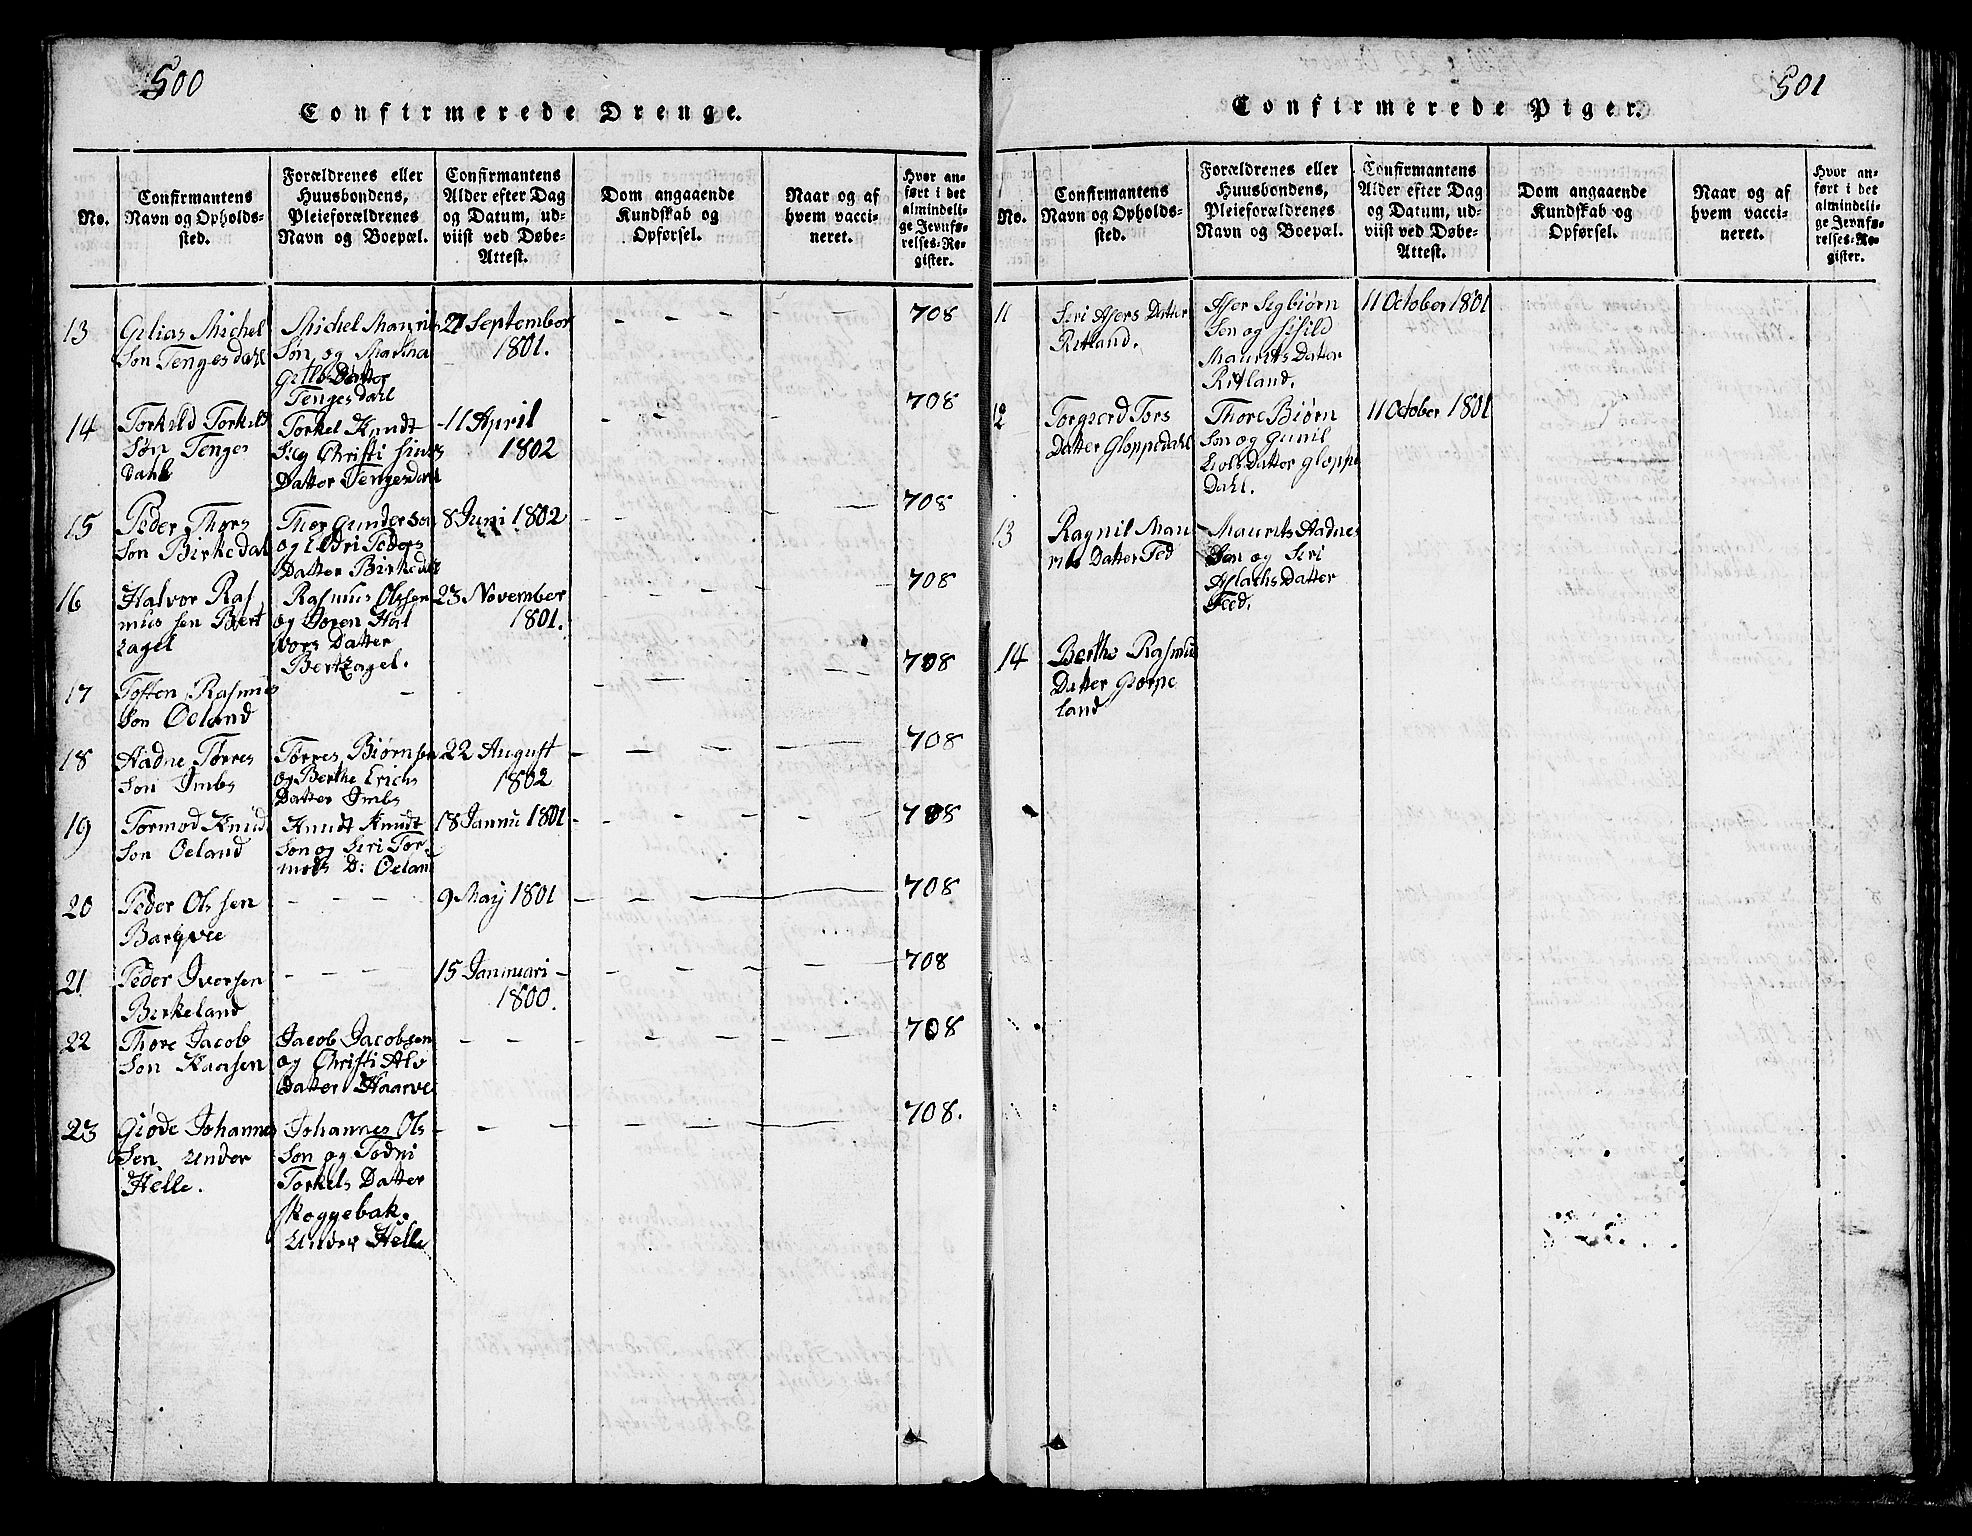 500
Confirmerede Drenge.
No.
Confirmantens
Navn og Opholds-
sted.
Forældrenes eller
Huusbondens,
Pleieforældrenes
Navn og Boepæl.
Confirmantens
Alder efter Dag
og Datum, ud-
viist ved Døbe-
Attest.
Dom angaaende
Kundskab og
Opførsel.
Naar og af
hvem vacci-
neret.
Hvor an-
ført i det
almindeli-
ge Jevnfø-
relses-Re-
gister.
13
Gelias Michel
Søn Tengesdahl
Michel Maurits
Søn og Martha
Datter
Tengesdahl
27 September
1801.
708
14
Torkild Torkild
Søn Tenges
Dahl
Torkel Knudt
Søg Christi
Datter Tengesdahl
11 April
1802
708
15
Peder Thors
Søn Birkedal
Thor Gunderson
og Eldri Peders
Datter Birkedal
8 Juni 1802
708
16
Halvor Ras
mus sen Bert
zagel
Rasmus Olssen
og Joren Hal
vors Datter
Bertzagel.
23 November
1801.
708
17
Tosten Rasmus
Søn Oeland
708
18
Aadne Tørres
Søn Imbs
Tørres Biørnsen
og Berthe Erichs
Datter Imbs
22 August
1802
708
19
Tormod Knud
Søn Oeland
Knudt Knudt
Søn og Seri Tor-
mods D: Oeland
18 Jannu 1801
708
20
Peder Olssen
Bargvee
9 May 1801
708
21
Peder Iversen
Birkeland
15 Januuari
1800.
708
22
Thore Jacob
Søn Kaasen
Jacob Jacobsen
og Christi Als
Datter Haarve
708
23
Giøde Johannes
Sen Under
Helle.
Johannes Ols
Søn og Todni
Torkels Datter
skoggebak.
Under Helle
708.
501
Confirmerede Piger.
No.
Confirmantens
Navn og Opholds-
sted.
Forældrenes eller
Huusbondens,
Pleieforældrenes
Navn og Boepæl.
Confirmantens
Alder efter Dag
og Datum, ud-
viist ved Døbe-
Attest.
Dom angaaende
Kundskab og
Opførsel.
Naar og af
hvem vacci-
neret.
Hvor an-
ført i det
almindeli-
ge Jevnfø-
relses-Re-
gister.
11
Seri Asers Datter
Ritland.
Aser Segbiørn
Sen og Sisild
Maurits Datter
Ritland.
11 October 1801
12
Torgierd Tors
Datter Gloppedahl
Thore Biørn
Søn og Gunil
Datter Gloppe
Dahl.
11 October 1801
13
Ragnil Mau
rits Datter Fed
Maurits Aadnes
Søn og Seri
Aslachs Datter
Feed.
14
Berthe Rasmus
Datter Giørpe
land